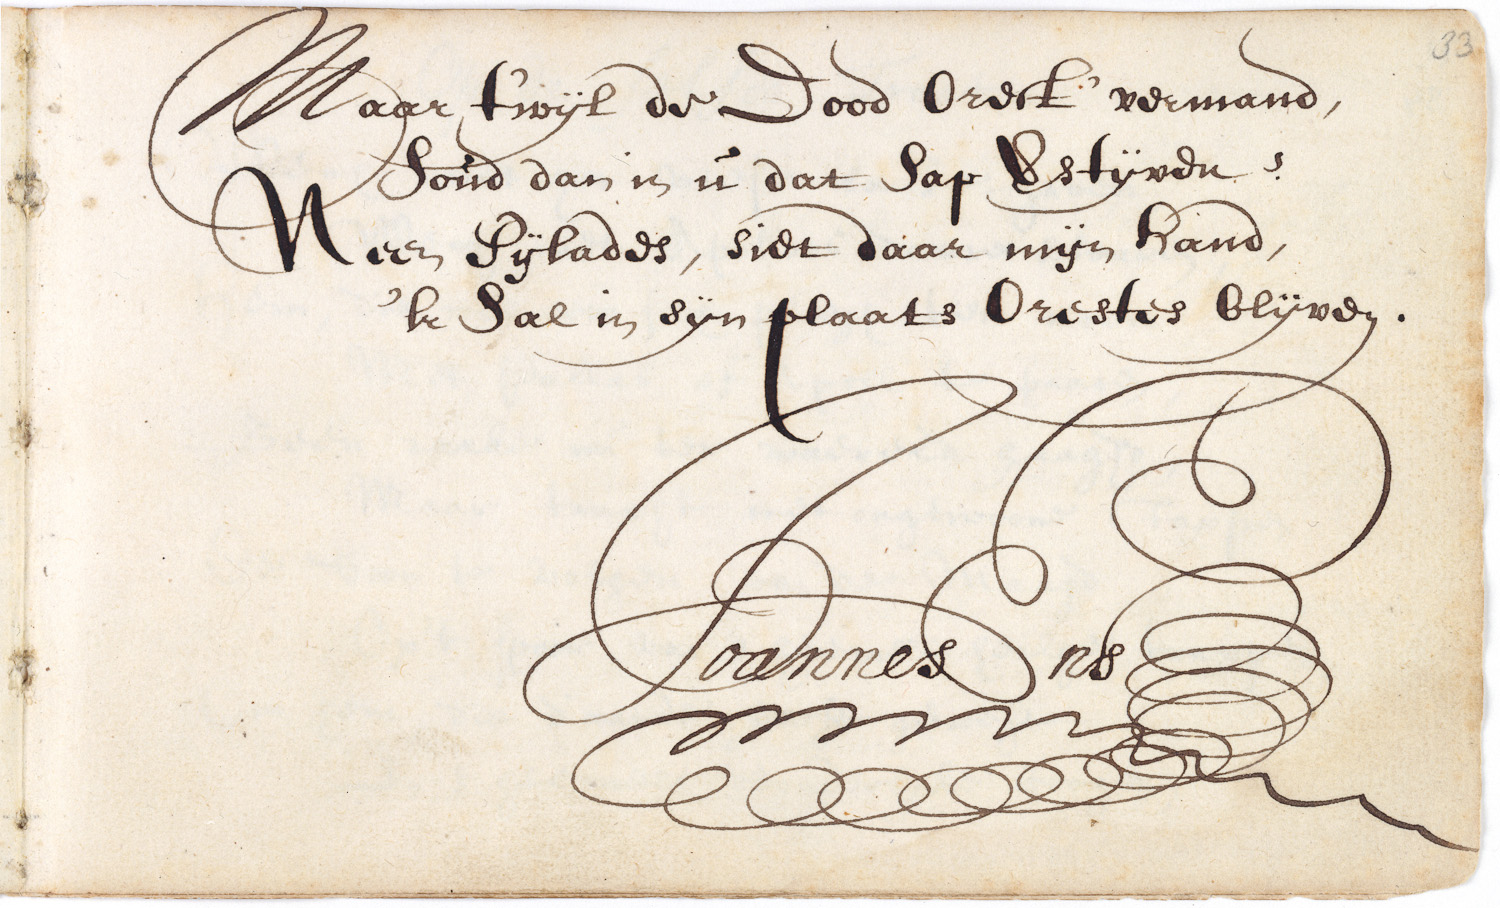 33
Maar t'wÿl de Dood Orest' vermand,
Soud dan in ú dat Sap Estÿven?
Neen Pÿlades, siet daar mÿn hand,
'k Sal in sÿn plaats Orestes blÿven.
Joannes Ens